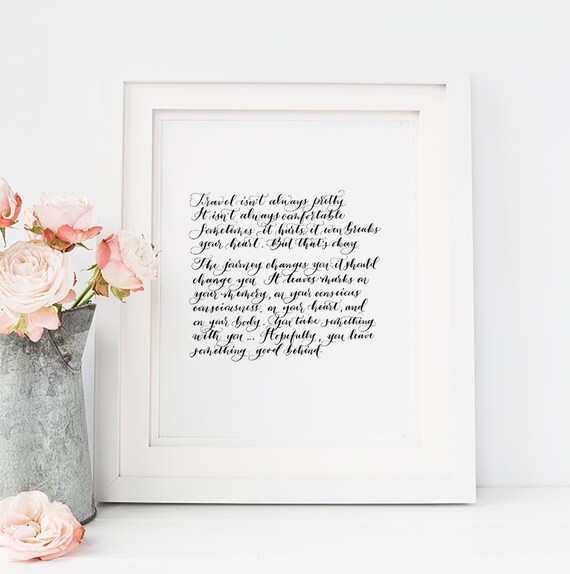 Travel isn't always pretty
It isn't always comfortable
Sometimes it hurts, it even breaks
your heart. But that's okay
The journey changes you it should
change you It leaves marks on
your memory, on your conscious
consciousness, on your heart, and
on your body. You take something
with you... Hopefully, you leave
something good behind